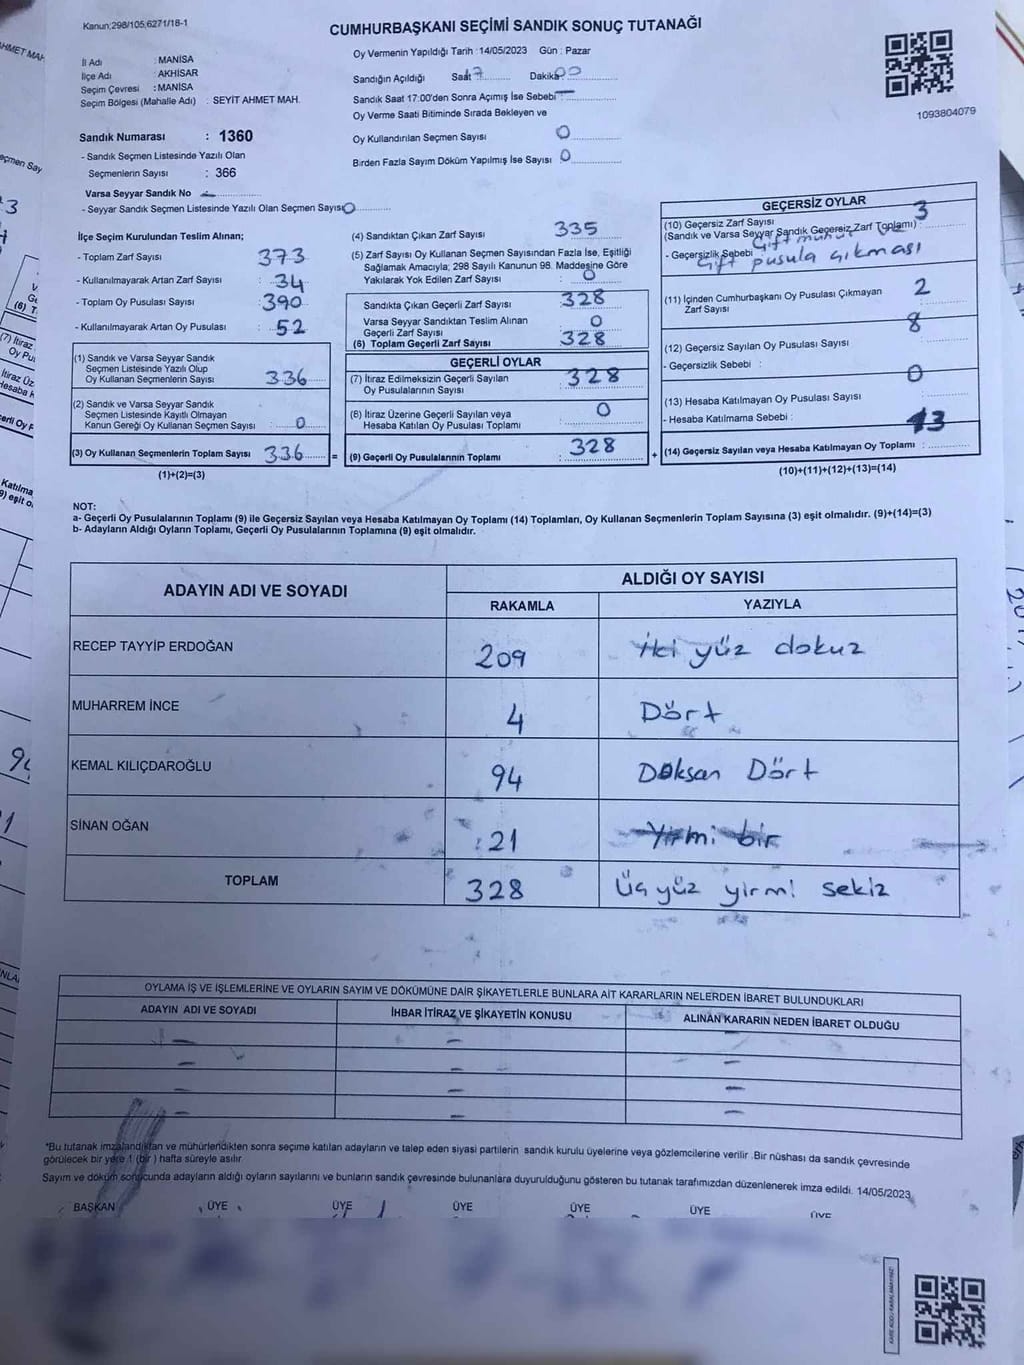 Kanun:298/105,6271/18-1
CUMHURBAŞKANI SEÇİMİ SANDIK SONUÇ TUTANAĞI
1093804079
İl Adı : MANİSA
İlçe Adı : AKHİSAR
Seçim Çevresi : MANİSA
Seçim Bölgesi (Mahalle Adı) : SEYİT AHMET MAH.
Sandık Numarası : 1360
- Sandık Seçmen Listesinde Yazılı Olan
Seçmenlerin Sayısı : 366
Varsa Seyyar Sandık No
- Seyyar Sandık Seçmen Listesinde Yazılı Olan Seçmen Sayısı 0
Oy Vermenin Yapıldığı Tarih : 14/05/2023 Gün : Pazar
Sandığın Açıldığı Saat 7 Dakika 00
Sandık Saat 17:00'den Sonra Açımış İse Sebebi
Oy Verme Saati Bitiminde Sırada Bekleyen ve
Oy Kullandırılan Seçmen Sayısı 0
Birden Fazla Sayım Döküm Yapılmış İse Sayısı 0
İlçe Seçim Kurulundan Teslim Alınan;
- Toplam Zarf Sayısı : 373
- Kullanılmayarak Artan Zarf Sayısı : 34
- Toplam Oy Pusulası Sayısı : 390
- Kullanılmayarak Artan Oy Pusulası : 52
(1) Sandık ve Varsa Seyyar Sandık
Seçmen Listesinde Yazılı Olup
Oy Kullanan Seçmenlerin Sayısı : 336
(2) Sandık ve Varsa Seyyar Sandık
Seçmen Listesinde Kayıtlı Olmayan
Kanun Gereği Oy Kullanan Seçmen Sayısı : 0
(3) Oy Kullanan Seçmenlerin Toplam Sayısı 336 =
(1)+(2)=(3)
(4) Sandıktan Çıkan Zarf Sayısı 335
(5) Zarf Sayısı Oy Kullanan Seçmen Sayısından Fazla İse, Eşitliği
Sağlamak Amacıyla; 298 Sayılı Kanunun 98. Maddesine Göre
Yakılarak Yok Edilen Zarf Sayısı : 0
Sandıkta Çıkan Geçerli Zarf Sayısı : 328
Varsa Seyyar Sandıktan Teslim Alınan
Geçerli Zarf Sayısı 0
(6) Toplam Geçerli Zarf Sayısı : 328
GEÇERLİ OYLAR
(7) İtiraz Edilmeksizin Geçerli Sayılan
Oy Pusulalarının Sayısı : 328
(8) İtiraz Üzerine Geçerli Sayılan veya
Hesaba Katılan Oy Pusulası Toplamı : 0
(9) Geçerli Oy Pusulalarının Toplamı : 328 +
GEÇERSİZ OYLAR
(10) Geçersiz Zarf Sayısı 3
(Sandık ve Varsa Seyyar Sandık Geçersiz Zarf Toplamı) :
- Geçersizlik Sebebi Çift mühür ve
Çift pusula çıkması
(11) İçinden Cumhurbaşkanı Oy Pusulası Çıkmayan 2
Zarf Sayısı
(12) Geçersiz Sayılan Oy Pusulası Sayısı 8
- Geçersizlik Sebebi :
(13) Hesaba Katılmayan Oy Pusulası Sayısı 0
- Hesaba Katılmama Sebebi :
(14) Geçersiz Sayılan veya Hesaba Katılmayan Oy Toplamı : 13
(10)+(11)+(12)+(13)=(14)
NOT:
a- Geçerli Oy Pusulalarının Toplamı (9) ile Geçersiz Sayılan veya Hesaba Katılmayan Oy Toplamı (14) Toplamları, Oy Kullanan Seçmenlerin Toplam Sayısına (3) eşit olmalıdır. (9)+(14)=(3)
b- Adayların Aldığı Oyların Toplamı, Geçerli Oy Pusulalarının Toplamına (9) eşit olmalıdır.
ADAYIN ADI VE SOYADI
ALDIĞI OY SAYISI
RAKAMLA YAZIYLA
RECEP TAYYİP ERDOĞAN 209 İki yüz dokuz
MUHARREM İNCE 4 Dört
KEMAL KILIÇDAROĞLU 94 Doksan Dört
SİNAN OĞAN 21 Yirmi bir
TOPLAM 328 Üç yüz yirmi sekiz
OYLAMA İŞ VE İŞLEMLERİNE VE OYLARIN SAYIM VE DÖKÜMÜNE DAİR ŞİKAYETLERLE BUNLARA AİT KARARLARIN NELERDEN İBARET BULUNDUKLARI
ADAYIN ADI VE SOYADI İHBAR İTİRAZ VE ŞİKAYETİN KONUSU ALINAN KARARIN NEDEN İBARET OLDUĞU
*Bu tutanak imzalandıktan ve mühürlendikten sonra seçime katılan adayların ve talep eden siyasi partilerin sandık kurulu üyelerine veya gözlemcilerine verilir .Bir nüshası da sandık çevresinde
görülecek bir yere 1 (bir ) hafta süreyle asılır
Sayım ve döküm sonucunda adayların aldığı oyların sayılarını ve bunların sandık çevresinde bulunanlara duyurulduğunu gösteren bu tutanak tarafımızdan düzenlenerek imza edildi. 14/05/2023
BAŞKAN ÜYE ÜYE ÜYE ÜYE ÜYE ÜYE